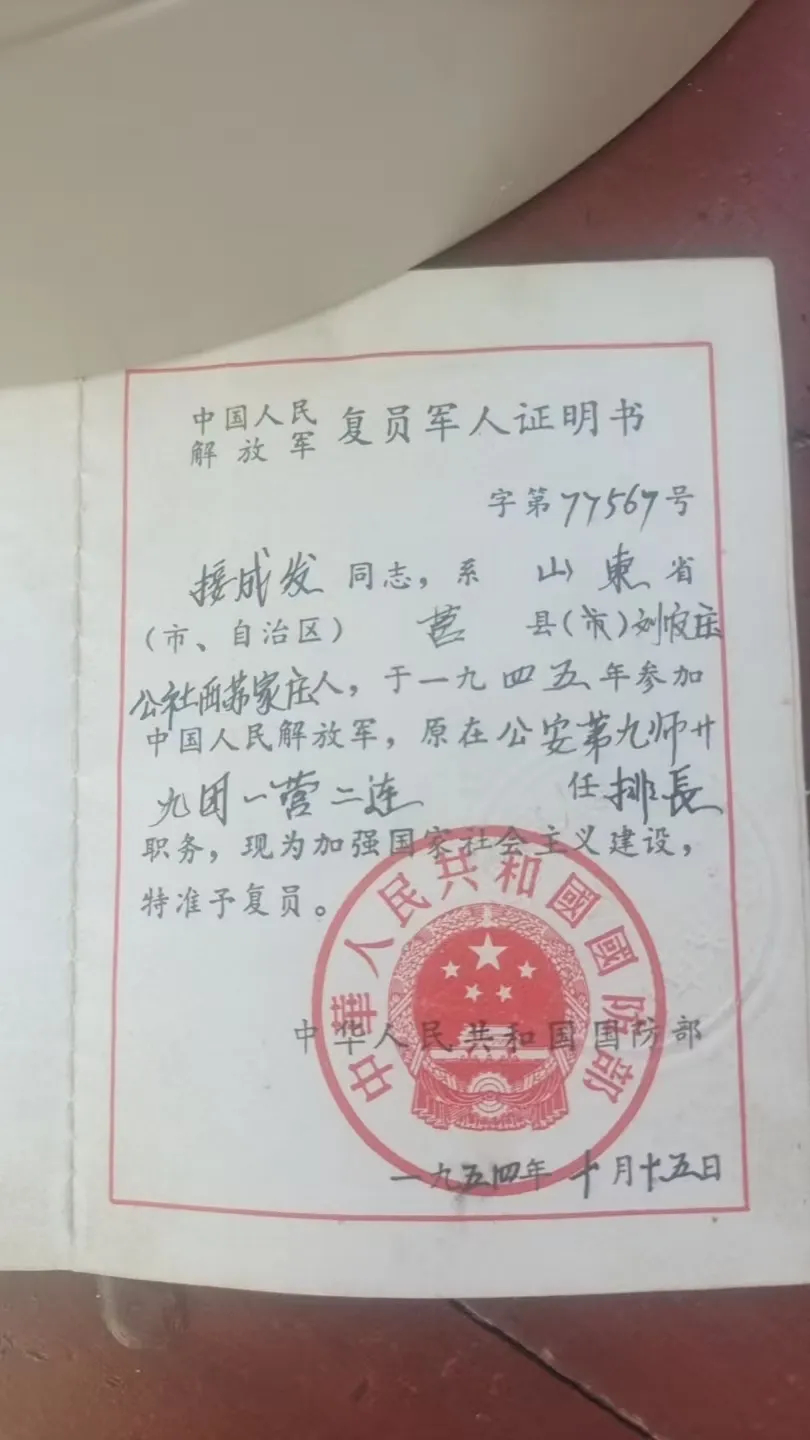 中国人民
解放军 复员军人证明书
字第77567号
接成发 同志，系 山東省
（市、自治区） 莒 县（市）刘家庄
公社西苏家庄人，于一九四五年参加
中国人民解放军，原在公安第九师廿
九团一营二连 任排長
职务，现为加强国家社会主义建设，
特准予复员。
中华人民共和国国防部
中華人民共和國國防部
一九五四年十月十五日